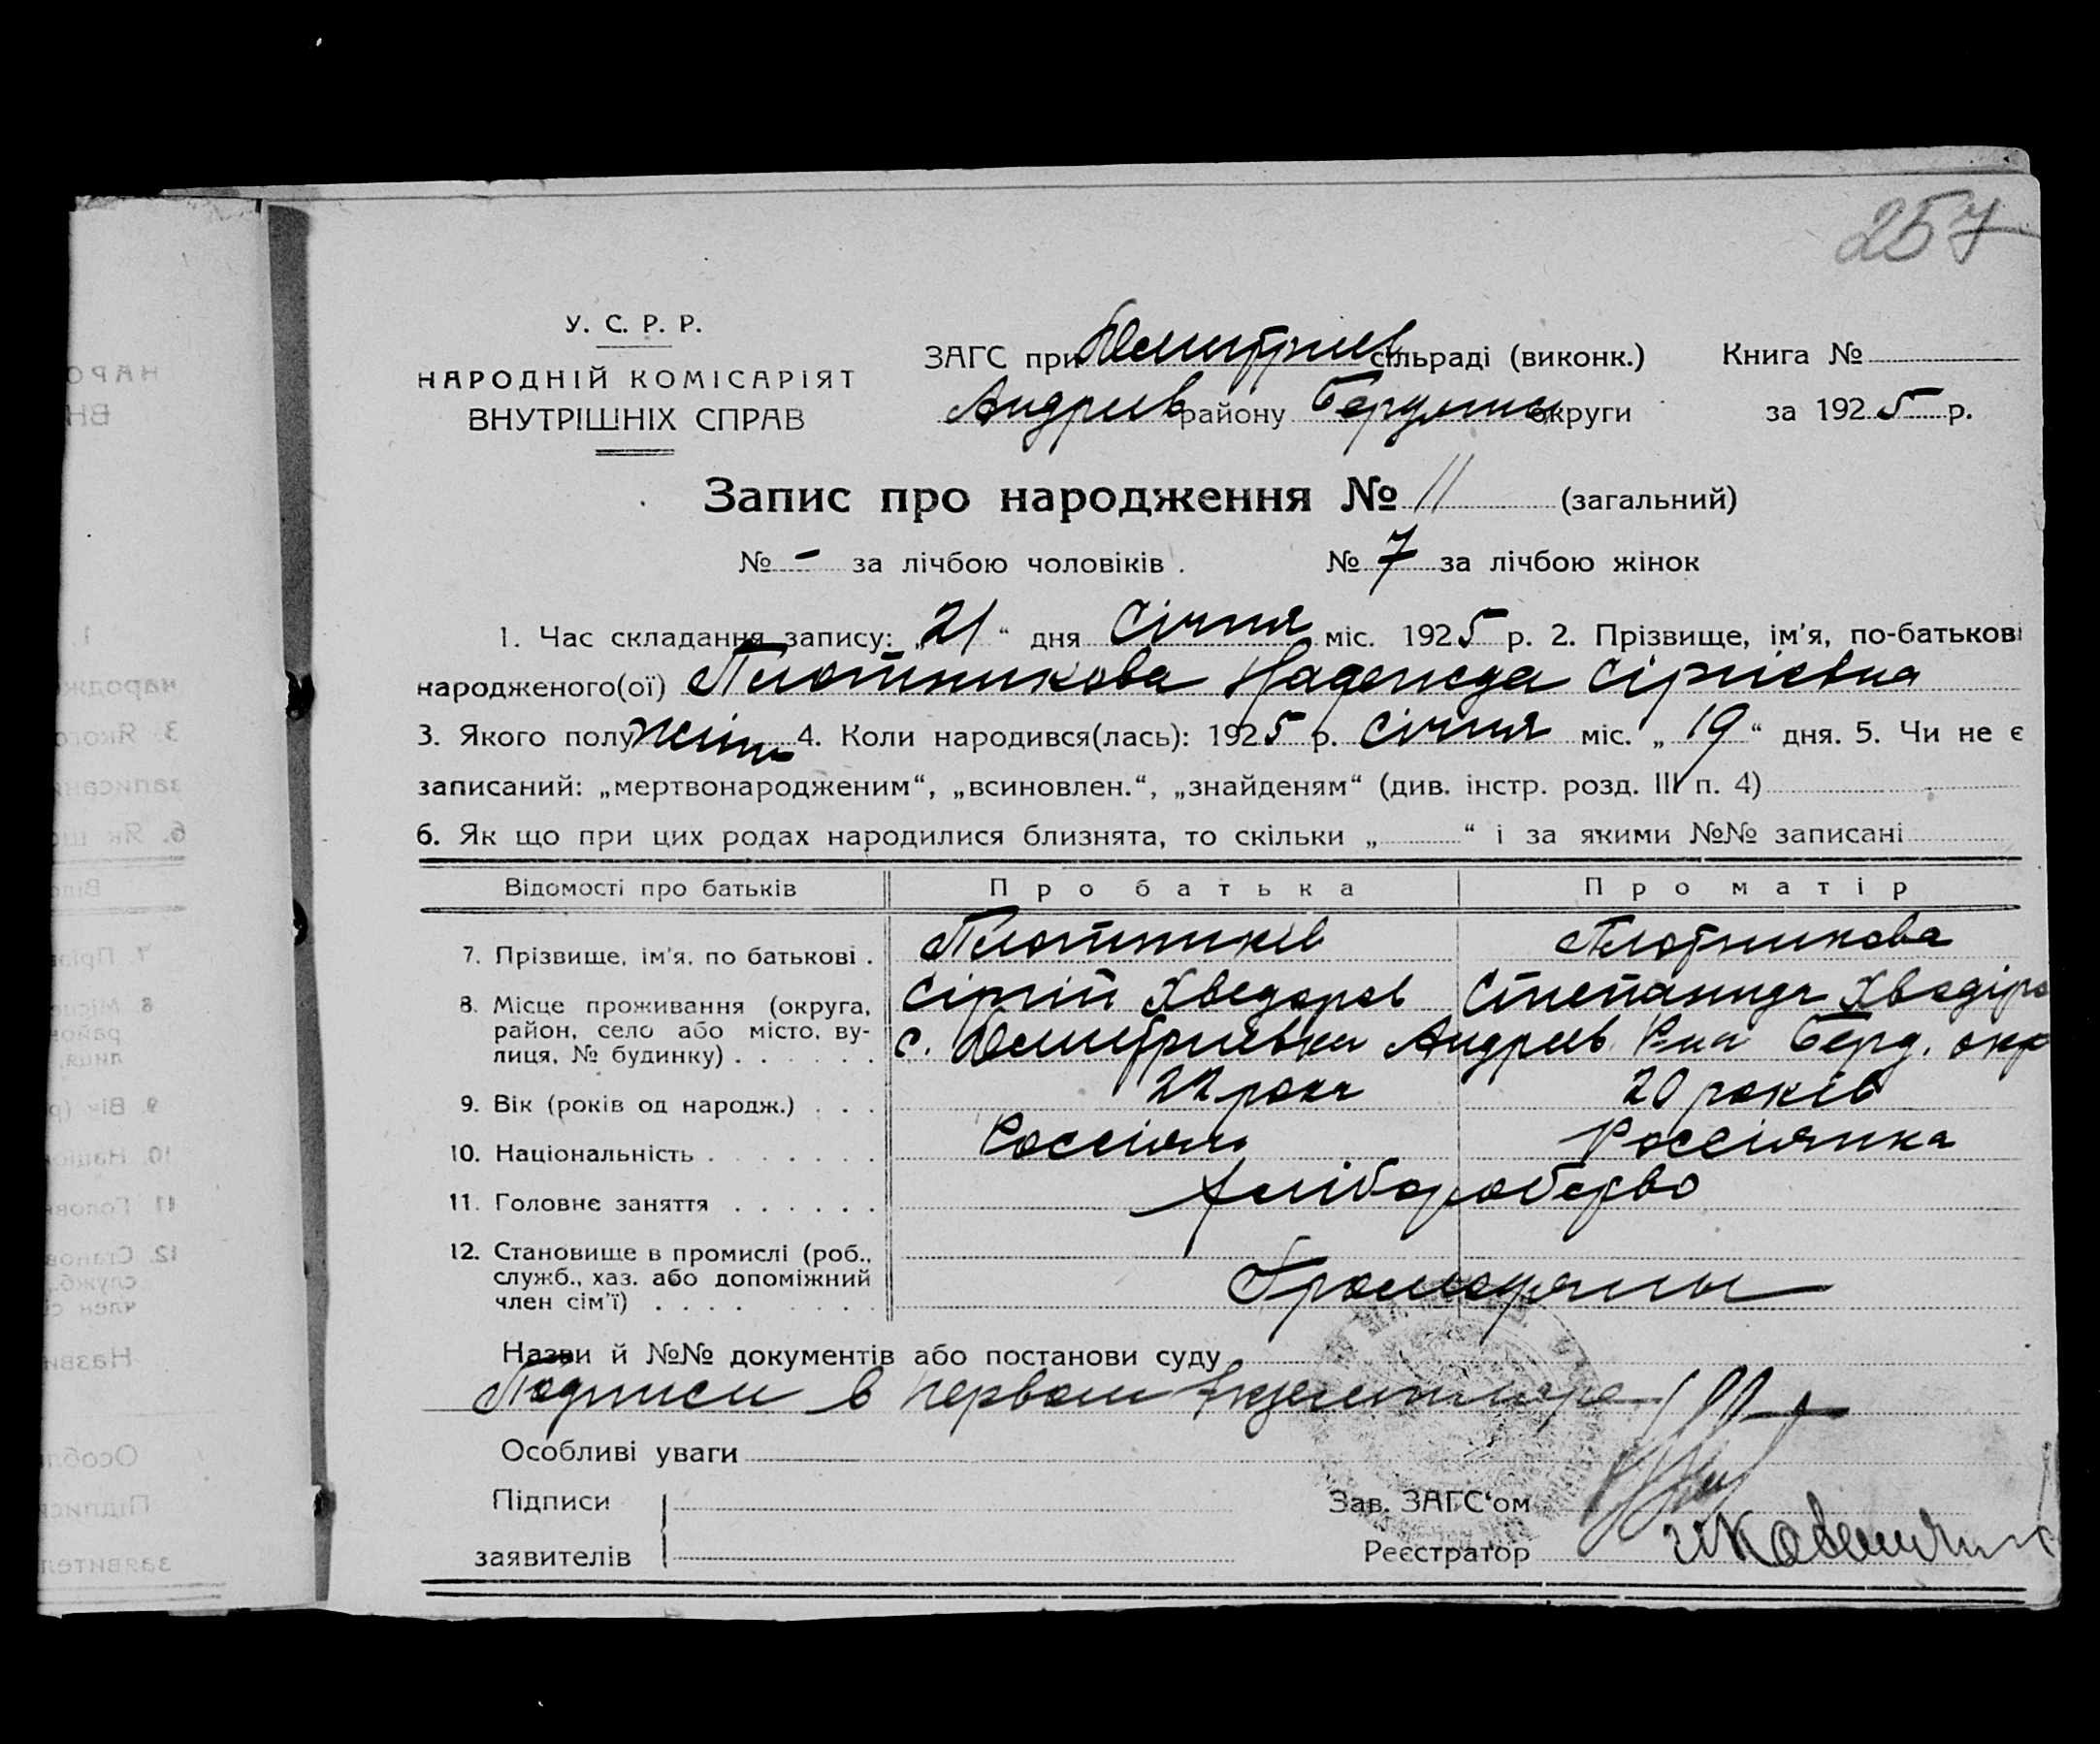 257
У. С. Р. Р.
НАРОДНІЙ КОМІСАРІЯТ
ВНУТРІШНІХ СПРАВ
ЗАГС при Дмитриев сільраді (виконк.) Книга №
Андреев району Бердянск округи за 1925 р.
Запис про народження № 11 (загальний)
№ – за лічбою чоловіків . № 7 за лічбою жінок
1. Час складання запису: „21“ дня Січня міс. 1925 р. 2. Прізвище, ім'я, по-батькові
народженого(ої) Плотникова Надежда Сіргієвна
3. Якого полу Жіноч 4. Коли народився(лась): 1925 р. Січня міс. „19“ дня. 5. Чи не є
записаний: „мертвонародженим“, „всиновлен.“, „знайденям“ (див. інстр. розд. III п. 4)
6. Як що при цих родах народилися близнята, то скільки „ “ і за якими №№ записані
Відомості про батьків Про батька Про матір
7. Прізвище, ім'я, по батькові . Плотників Плотникова
8. Місце проживання (округа, Сіргій Хведоров Степанида Хведіро
район, село або місто, ву- с. Дмитриевка Андреев. Р-на Берд. окр
лиця, № будинку) . . . . . .
9. Вік (років од народж.) . . . 22 роки 20 років
10. Національність . . . . . . . Россіян. Россіянка
11. Головне заняття . . . . . . Хліборобство
12. Становище в промислі (роб.,
служб., хаз. або допоміжний Громодяны
член сім'ї) . . . . . . . . .
Назви й №№ документів або постанови суду
Подписи в первом экземпляре
Особливі уваги
Підписи Зав. ЗАГС'ом
заявителів Реєстратор